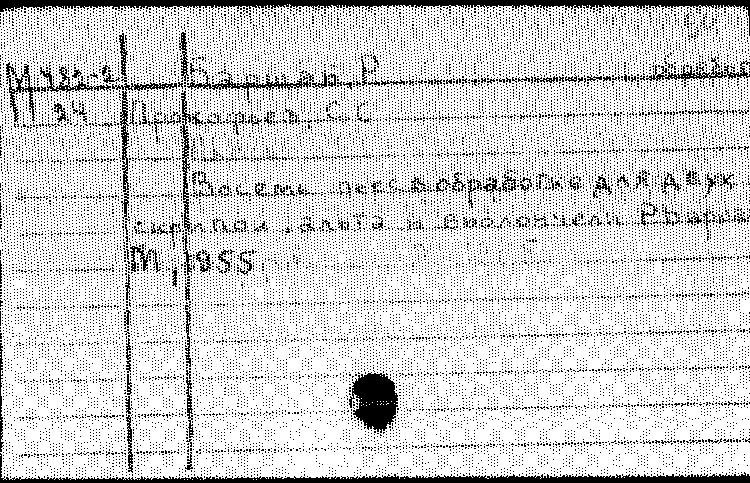 М 482-2 Баршай, Р обработ
24 Прокофьев, С С
Восемь пьес в обработке для двух
скрипок, альта и виолончели Р Барша
М, 1955